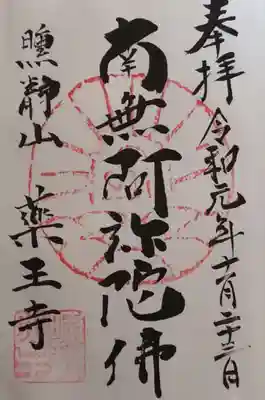 奉拝 令和元年十一月二十三日
南無阿弥陀佛
靜山 薬王寺